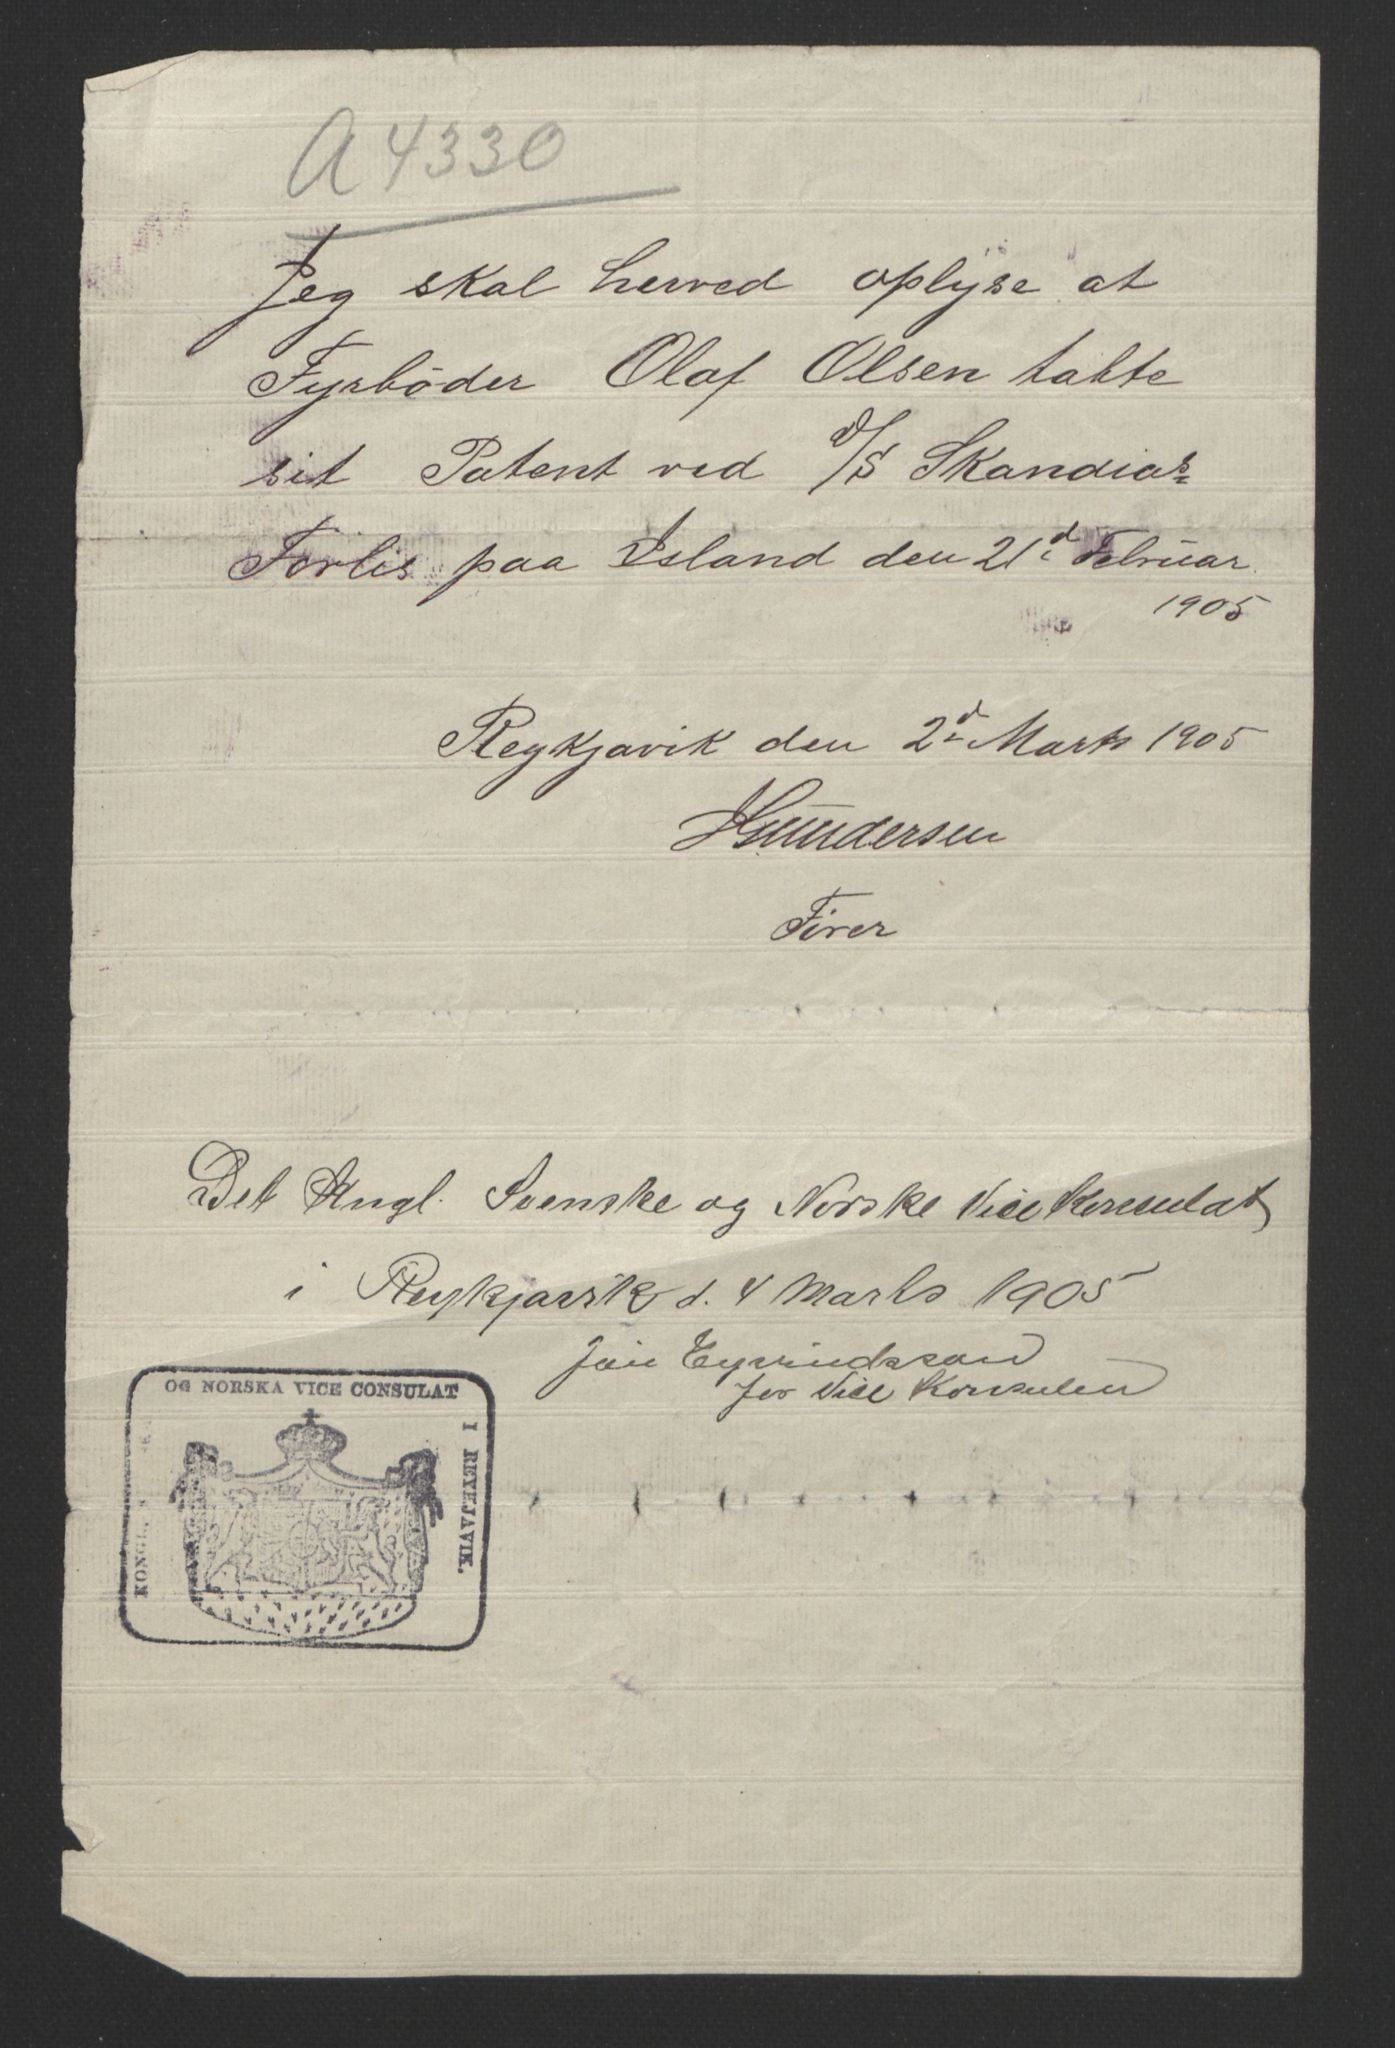 A 4330
Jeg skal herved oplyse at
Fyrböder Olaf Olsen tabte
sit Patent ved D/S Skandias
Forlis paa Island den 21d Februar
1905
Reykjavik den 2d Marts 1905
Gundersen
Förer
Det Kngl. Svenske og Norske Vice Konsulat
i Reykjavik d. 4 Marts 1905
Jón Eyvindsson
for Vice Konsulen
OG NORSKA VICE CONSULAT
I REYKJAVIK.
KONGL.